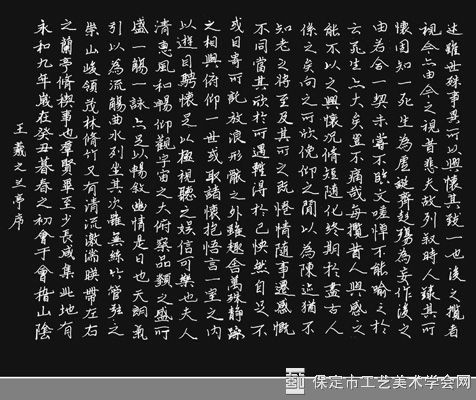 王羲之兰亭序
永和九年歲在癸丑暮春之初會于會稽山陰
之蘭亭脩禊事也群賢畢至少長咸集此地有
崇山峻領茂林脩竹又有清流激湍暎帶左右
引以為流觴曲水列坐其次雖無絲竹管弦之
盛一觴一詠亦足以暢敘幽情是日也天朗氣
清惠風和暢仰觀宇宙之大俯察品類之盛所
以遊目騁懷足以極視聽之娛信可樂也夫人
之相與俯仰一世或取諸懷抱悟言一室之內
或因寄所託放浪形骸之外雖趣舍萬殊靜躁
不同當其欣於所遇暫得於己快然自足不
知老之將至及其所之既惓情隨事遷感慨
係之矣向之所欣俛仰之間以為陳迹猶不
能不以之興懷況脩短隨化終期於盡古人
云死生亦大矣豈不痛哉每攬昔人興感之
由若合一契未嘗不臨文嗟悼不能喻之於
懷固知一死生為虛誕齊彭殤為妄作後之
視今亦由今之視昔悲夫故列敘時人錄其所
述雖世殊事異所以興懷其致一也後之攬者
保定市工艺美术学会网